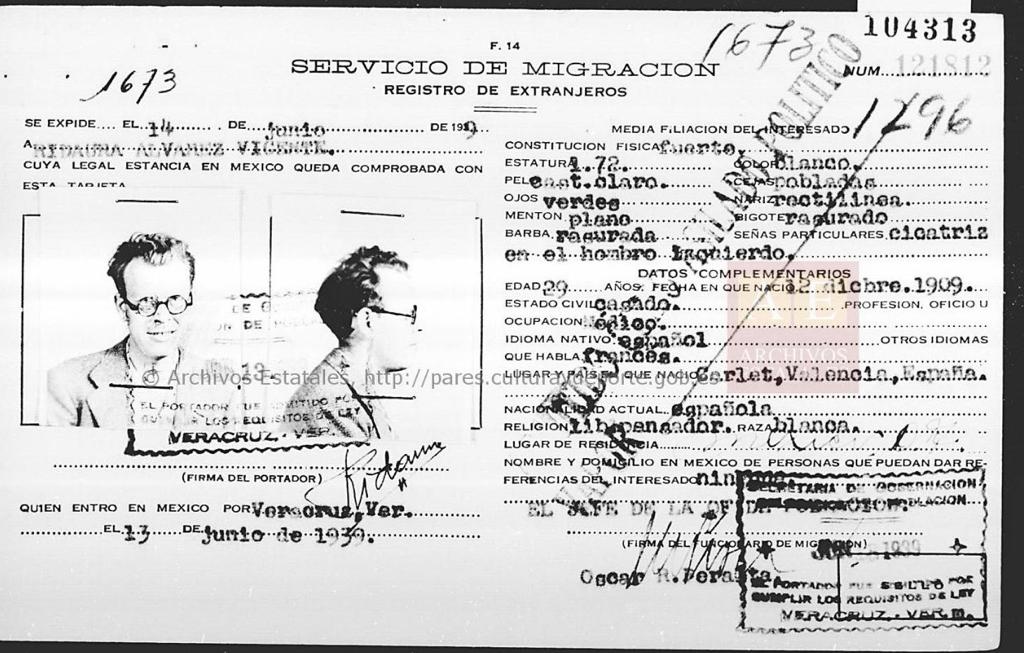 104313
F. 14
1673
NUM. 121812
SERVICIO DE MIGRACION
1673
REGISTRO DE EXTRANJEROS
1296
SE EXPIDE.... EL 14 DE junio DE 1939
A RIDAURA ALVAREZ VICENTE.
CUYA LEGAL ESTANCIA EN MEXICO QUEDA COMPROBADA CON
ESTA TARJETA
EL PORTADOR FUE ADMITIDO POR
CUMPLIR LOS REQUISITOS DE LEY
VERACRUZ.-VER.
Ridaura
(FIRMA DEL PORTADOR)
QUIEN ENTRO EN MEXICO POR Veracruz,Ver.
EL 13 DE junio de 1939.
MEDIA FILIACION DEL INTERESADO
CONSTITUCION FISICA fuerte,
ESTATURA 1.72. COLOR blanco.
PELO cast.claro. CEJAS pobladas
OJOS verdes NARIZ rectilinea.
MENTON plano BIGOTE rasurado
BARBA. rasurada SEÑAS PARTICULARES cicatriz
en el hombro izquierdo.
DATOS COMPLEMENTARIOS
EDAD 29 AÑOS. FECHA EN QUE NACIO 12 dicbre.1909.
ESTADO CIVIL casado. PROFESION, OFICIO U
OCUPACION Médico.
IDIOMA NATIVO español OTROS IDIOMAS
QUE HABLA francés.
LUGAR Y PAIS EN QUE NACIO Carlet,Valencia,España.
NACIONALIDAD ACTUAL española
RELIGION librepensador. RAZA blanca.
LUGAR DE RESIDENCIA
NOMBRE Y DOMICILIO EN MEXICO DE PERSONAS QUE PUEDAN DAR RE-
FERENCIAS DEL INTERESADO ninguna
EL JEFE DE LA OF. DE POBLACION.
(FIRMA DEL FUNCIONARIO DE MIGRACION)
Oscar R.Peralta
ASILADO POLITICO
SECRETARIA DE GOBERNACION
JUN 1939
EL PORTADOR FUE ADMITIDO POR
CUMPLIR LOS REQUISITOS DE LEY
VERACRUZ.-VER.
AE
ARCHIVOS
© Archivos Estatales, http://pares.culturaydeporte.gob.es